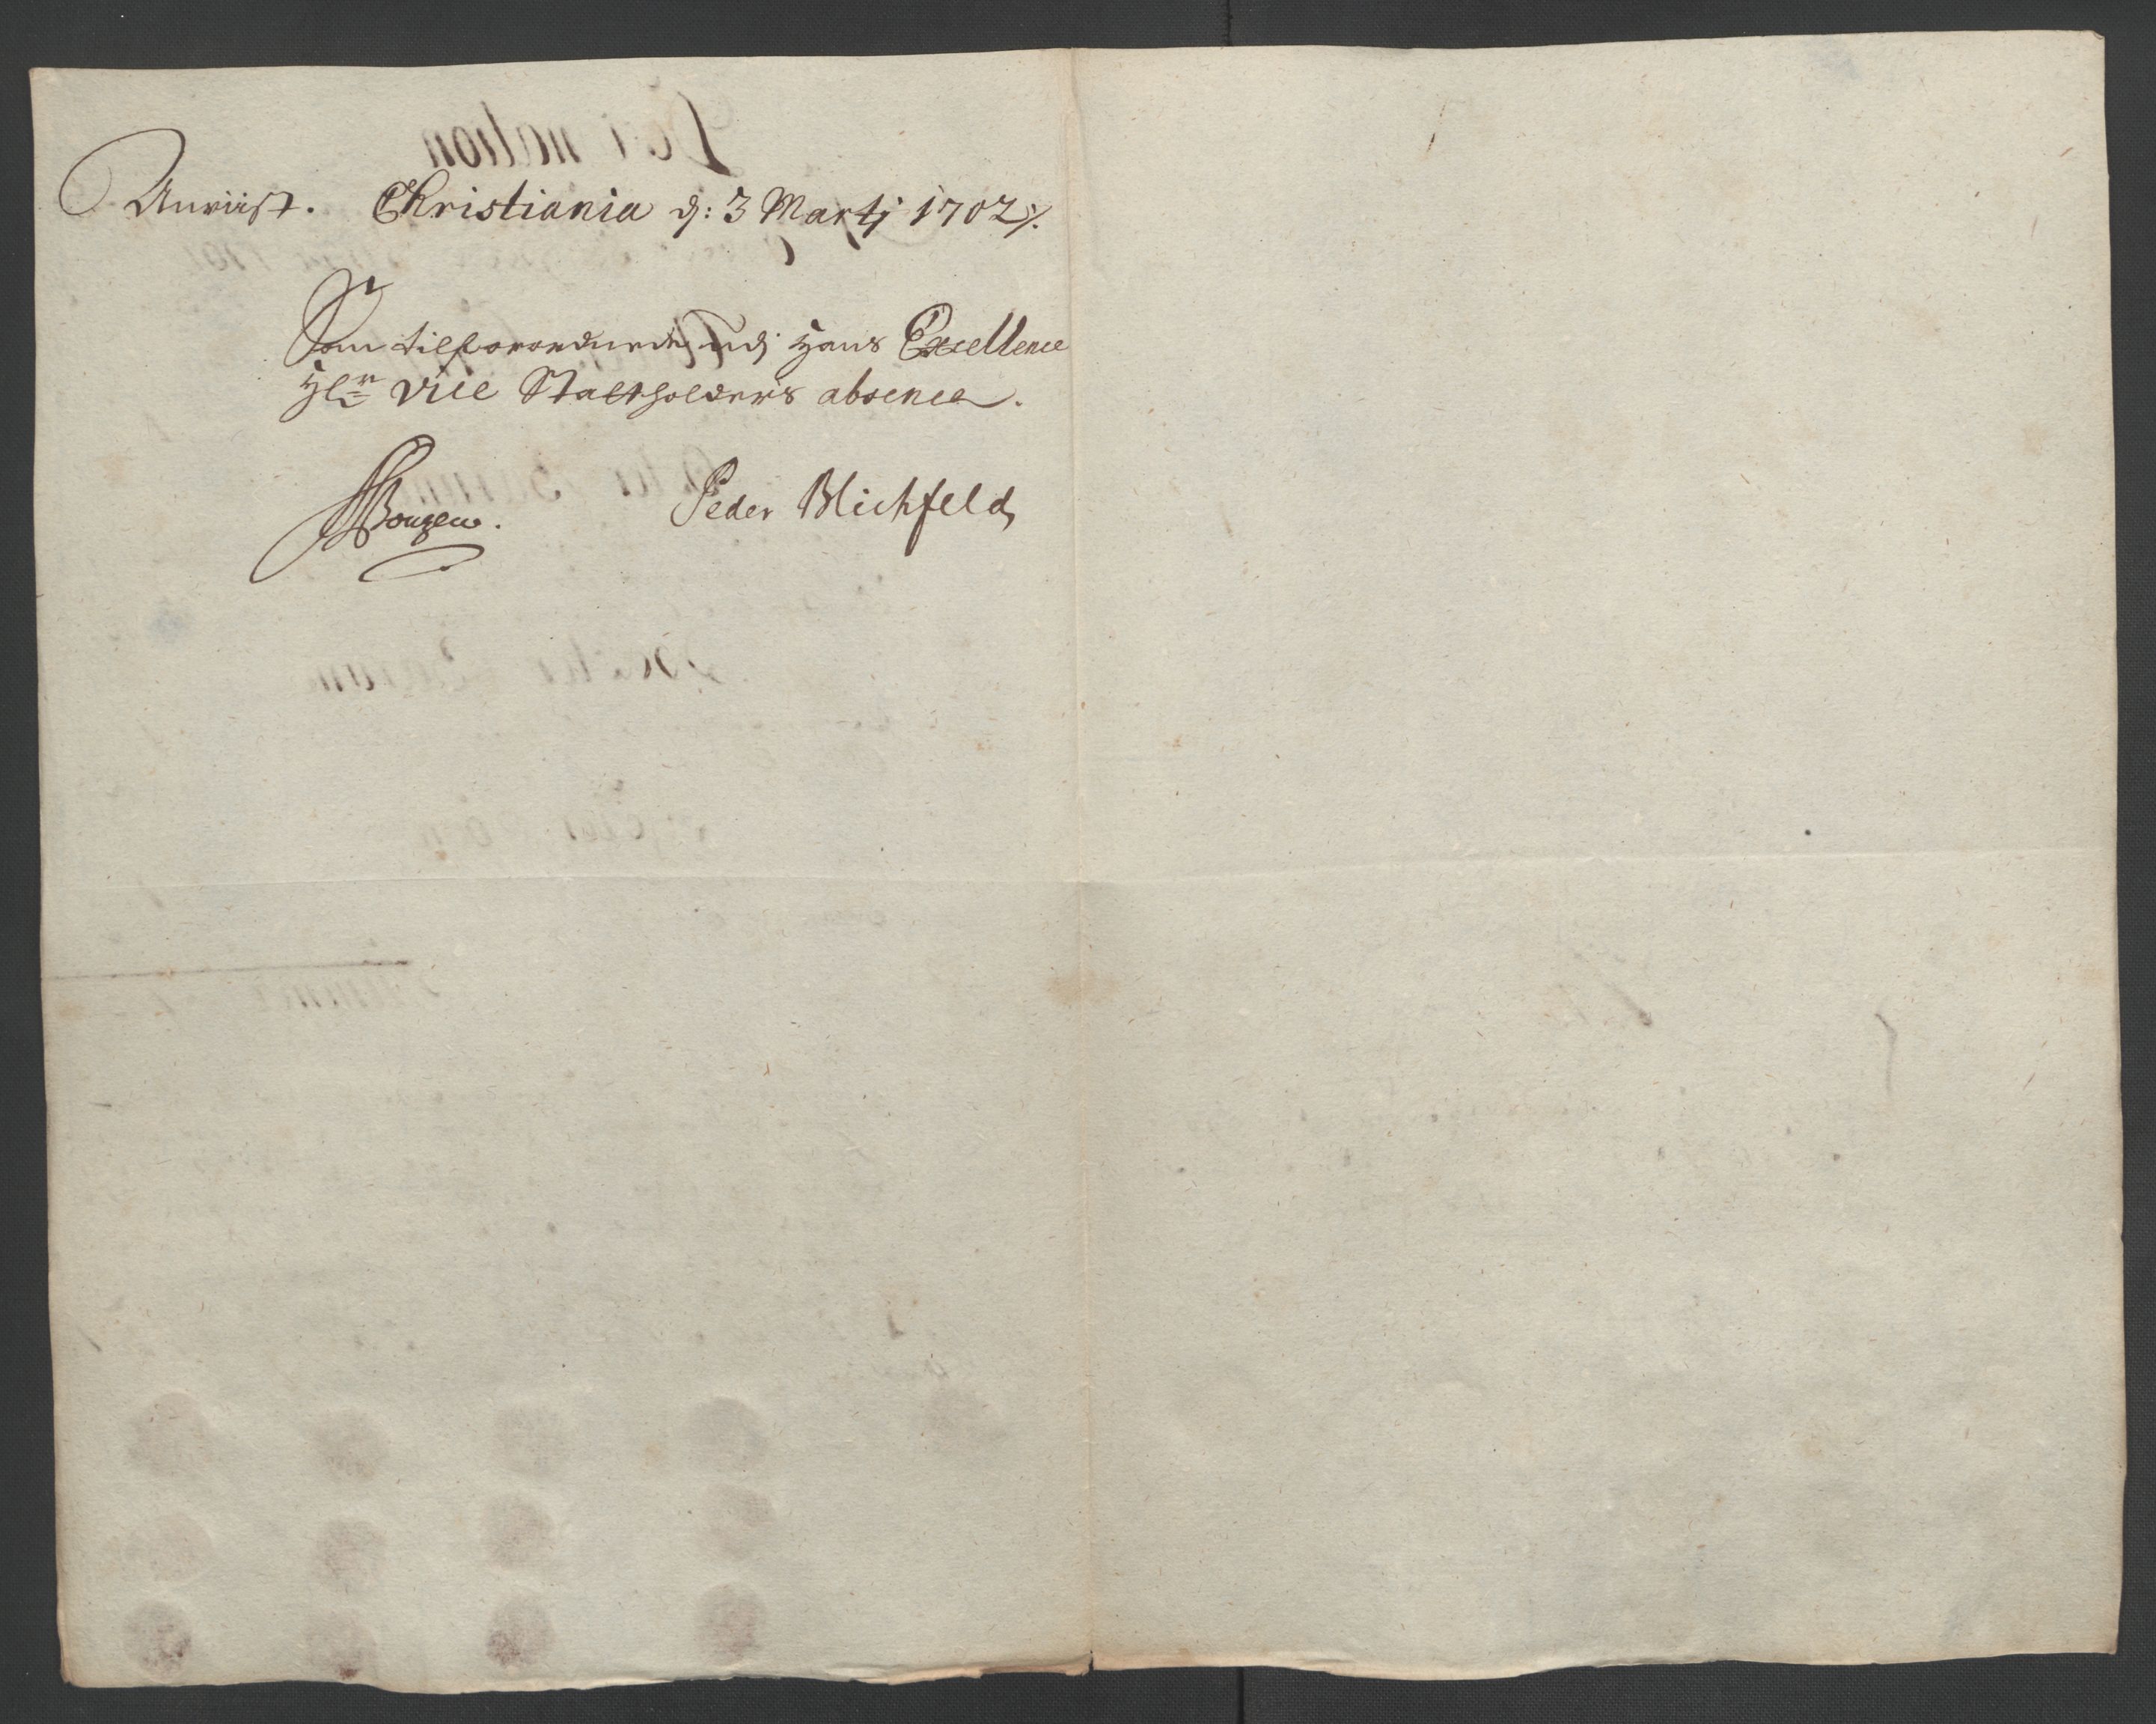 Anviist. Christiania d: 3 Martj 1702 ⁒.
Som tilforordnede udj Hans Excellence
Hr. Vice Stattholders absence.
Peder Blichfeld